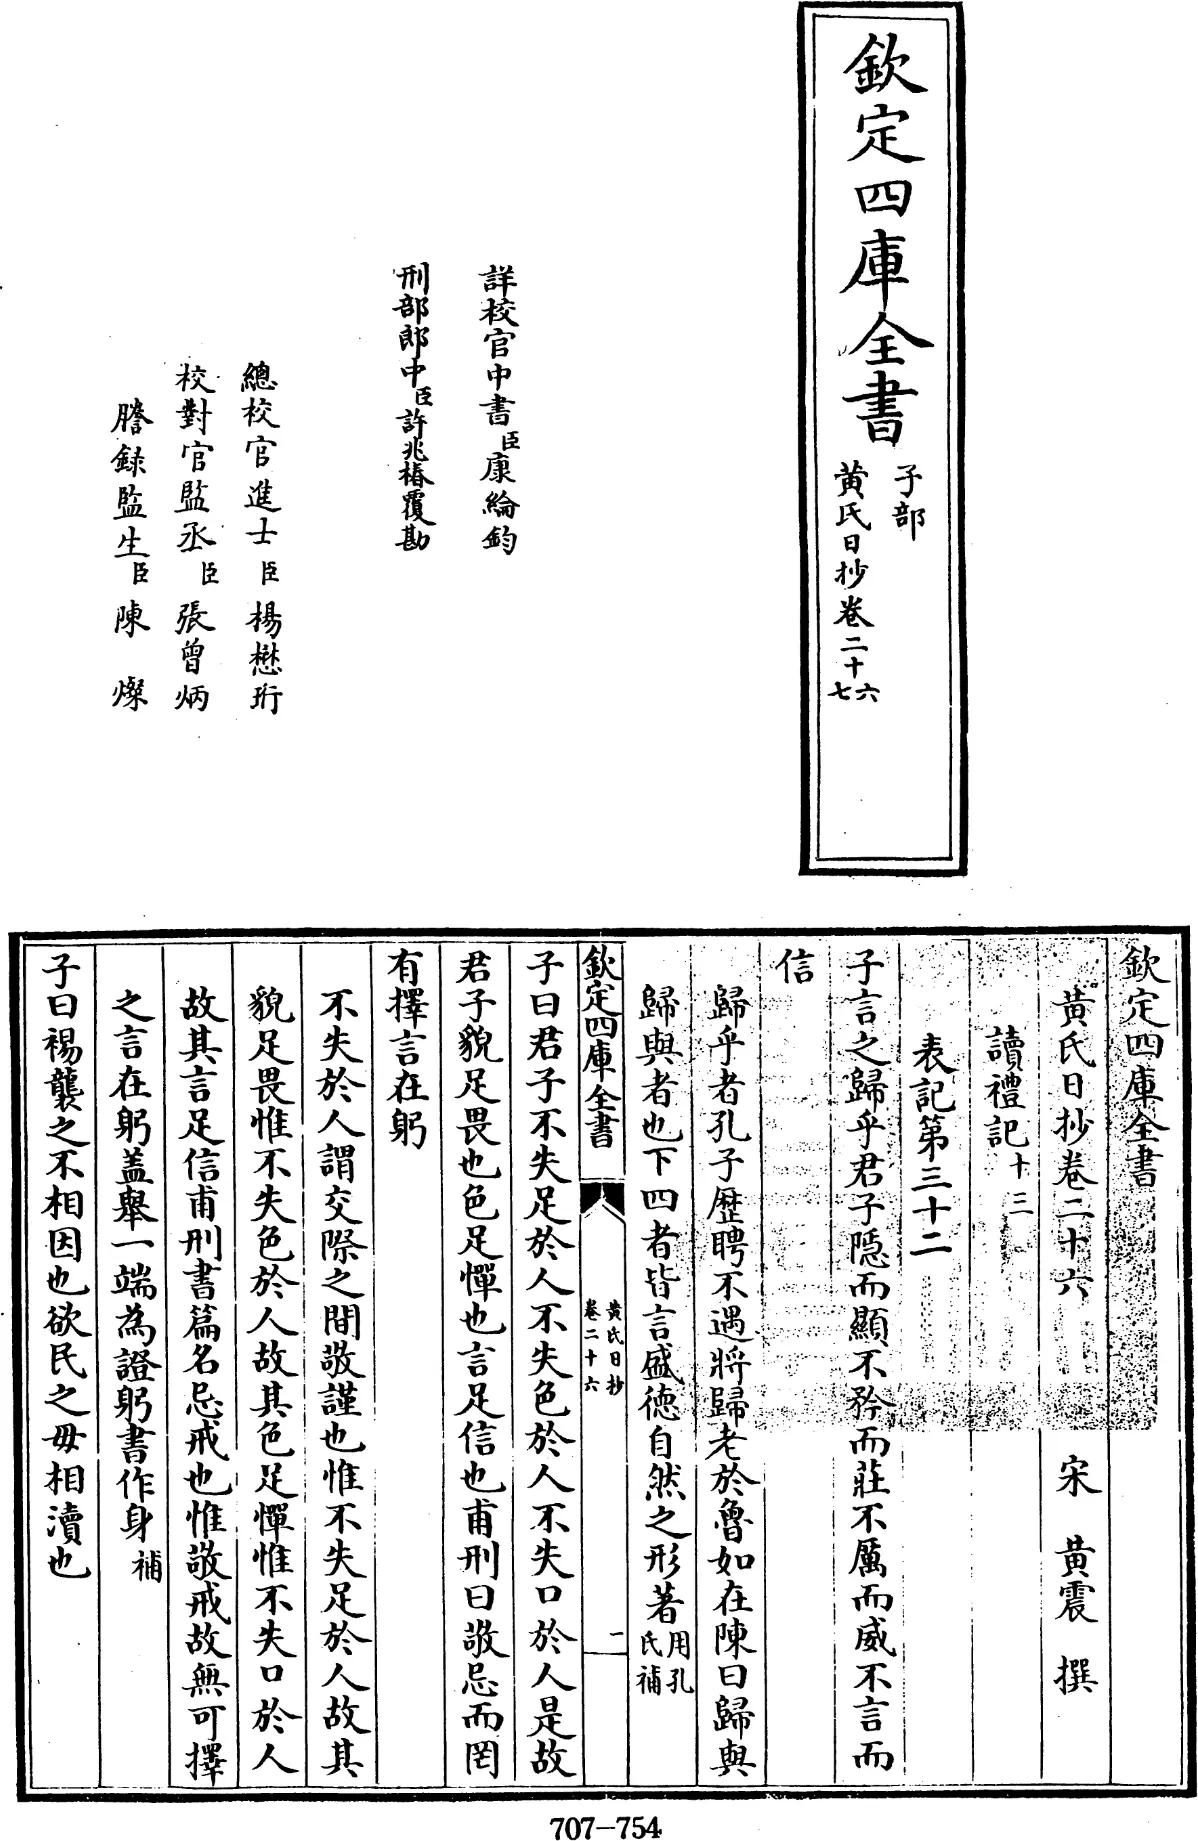 欽定四庫全書
子部
黄氏日抄卷二十六
七
詳校官中書臣康綸鈞
刑部郎中臣許兆椿覆勘
總校官進士臣楊懋珩
校對官監丞臣張曾炳
謄録監生臣陳燦
欽定四庫全書
黄氏日抄卷二十六
宋 黄震 撰
讀禮記十三
表記第三十二
子言之歸乎君子隱而顯不矜而莊不厲而威不言而
信
歸乎者孔子歷聘不遇將歸老於魯如在陳曰歸與
歸與者也下四者皆言盛徳自然之形著用孔
氏補
欽定四庫全書
黄氏日抄
卷二十六
一
子曰君子不失足於人不失色於人不失口於人是故
君子貌足畏也色足憚也言足信也甫刑曰敬忌而罔
有擇言在躬
不失於人謂交際之間敬謹也惟不失足於人故其
貌足畏惟不失色於人故其色足憚惟不失口於人
故其言足信甫刑書篇名忌戒也惟敬戒故無可擇
之言在躬盖舉一端為證躬書作身補
子曰裼襲之不相因也欲民之毋相瀆也
707-754